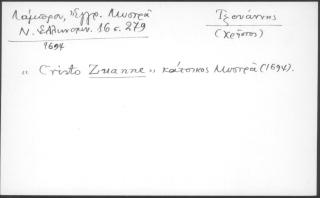 Λάμπρου, Ἔγγρ. Μυστρᾶ
Ν. Ἑλληνομν. 16 σ. 279
1694
Τζουάννης
(Χρῆστος)
"Cristo Zuanne" κάτοικος Μυστρᾶ (1694).